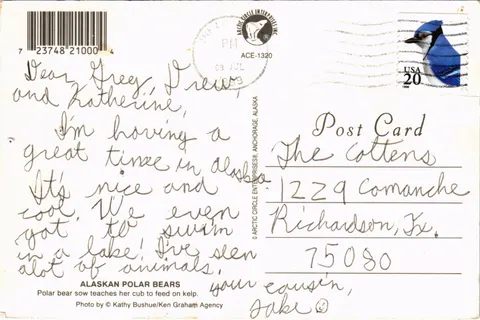 7 23748 21000 4
ARCTIC CIRCLE ENTERPRISES INC.
ACE-1320
PM
USA
20
Dear Greg, Drew,
and Katherine,
I'm having a
great time in alaska
It's nice and
cool. We even
got to swim
in a lake! I've seen
alot of animals.
your cousin,
Jake
ALASKAN POLAR BEARS
Polar bear sow teaches her cub to feed on kelp.
Photo by © Kathy Bushue/Ken Graham Agency
© ARCTIC CIRCLE ENTERPRISES®, ANCHORAGE, ALASKA
Post Card
The Cottens
1229 Comanche
Richardson, Tx.
75080